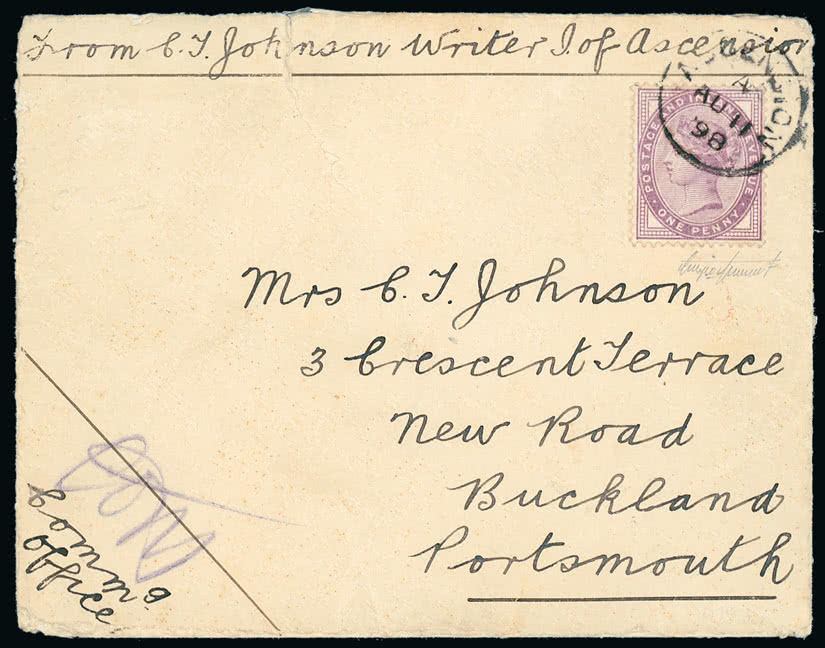 From C. T. Johnson Writer I. of Ascension
ASCENSION
A
AU 11
98
POSTAGE AND INLAND REVENUE
ONE PENNY
Mrs C. T. Johnson
3 Crescent Terrace
New Road
Buckland
Portsmouth
Commg.
Office